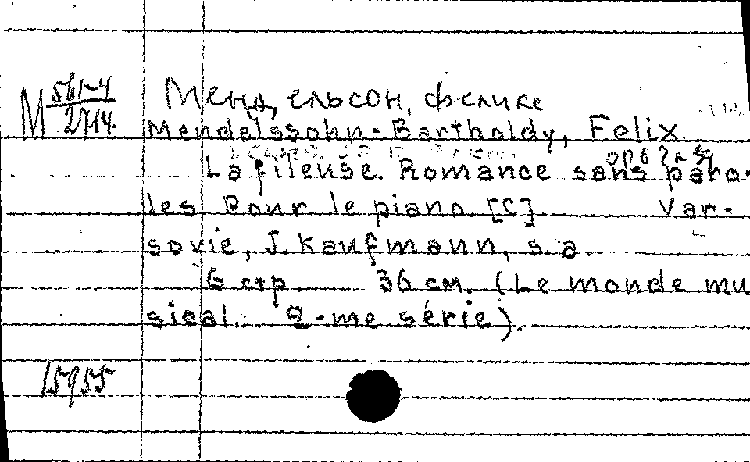 М 561-4
2714
Менд, ельсон, Феликс
Mendelssohn-Bartholdy, Felix
La fileuse. Romance sans paro-
les pour le piano. [C] Var-
sovie, J. Kaufmann, s.a.
6 стр. 36 см. (Le monde mu
sical. 2-me série).
15955